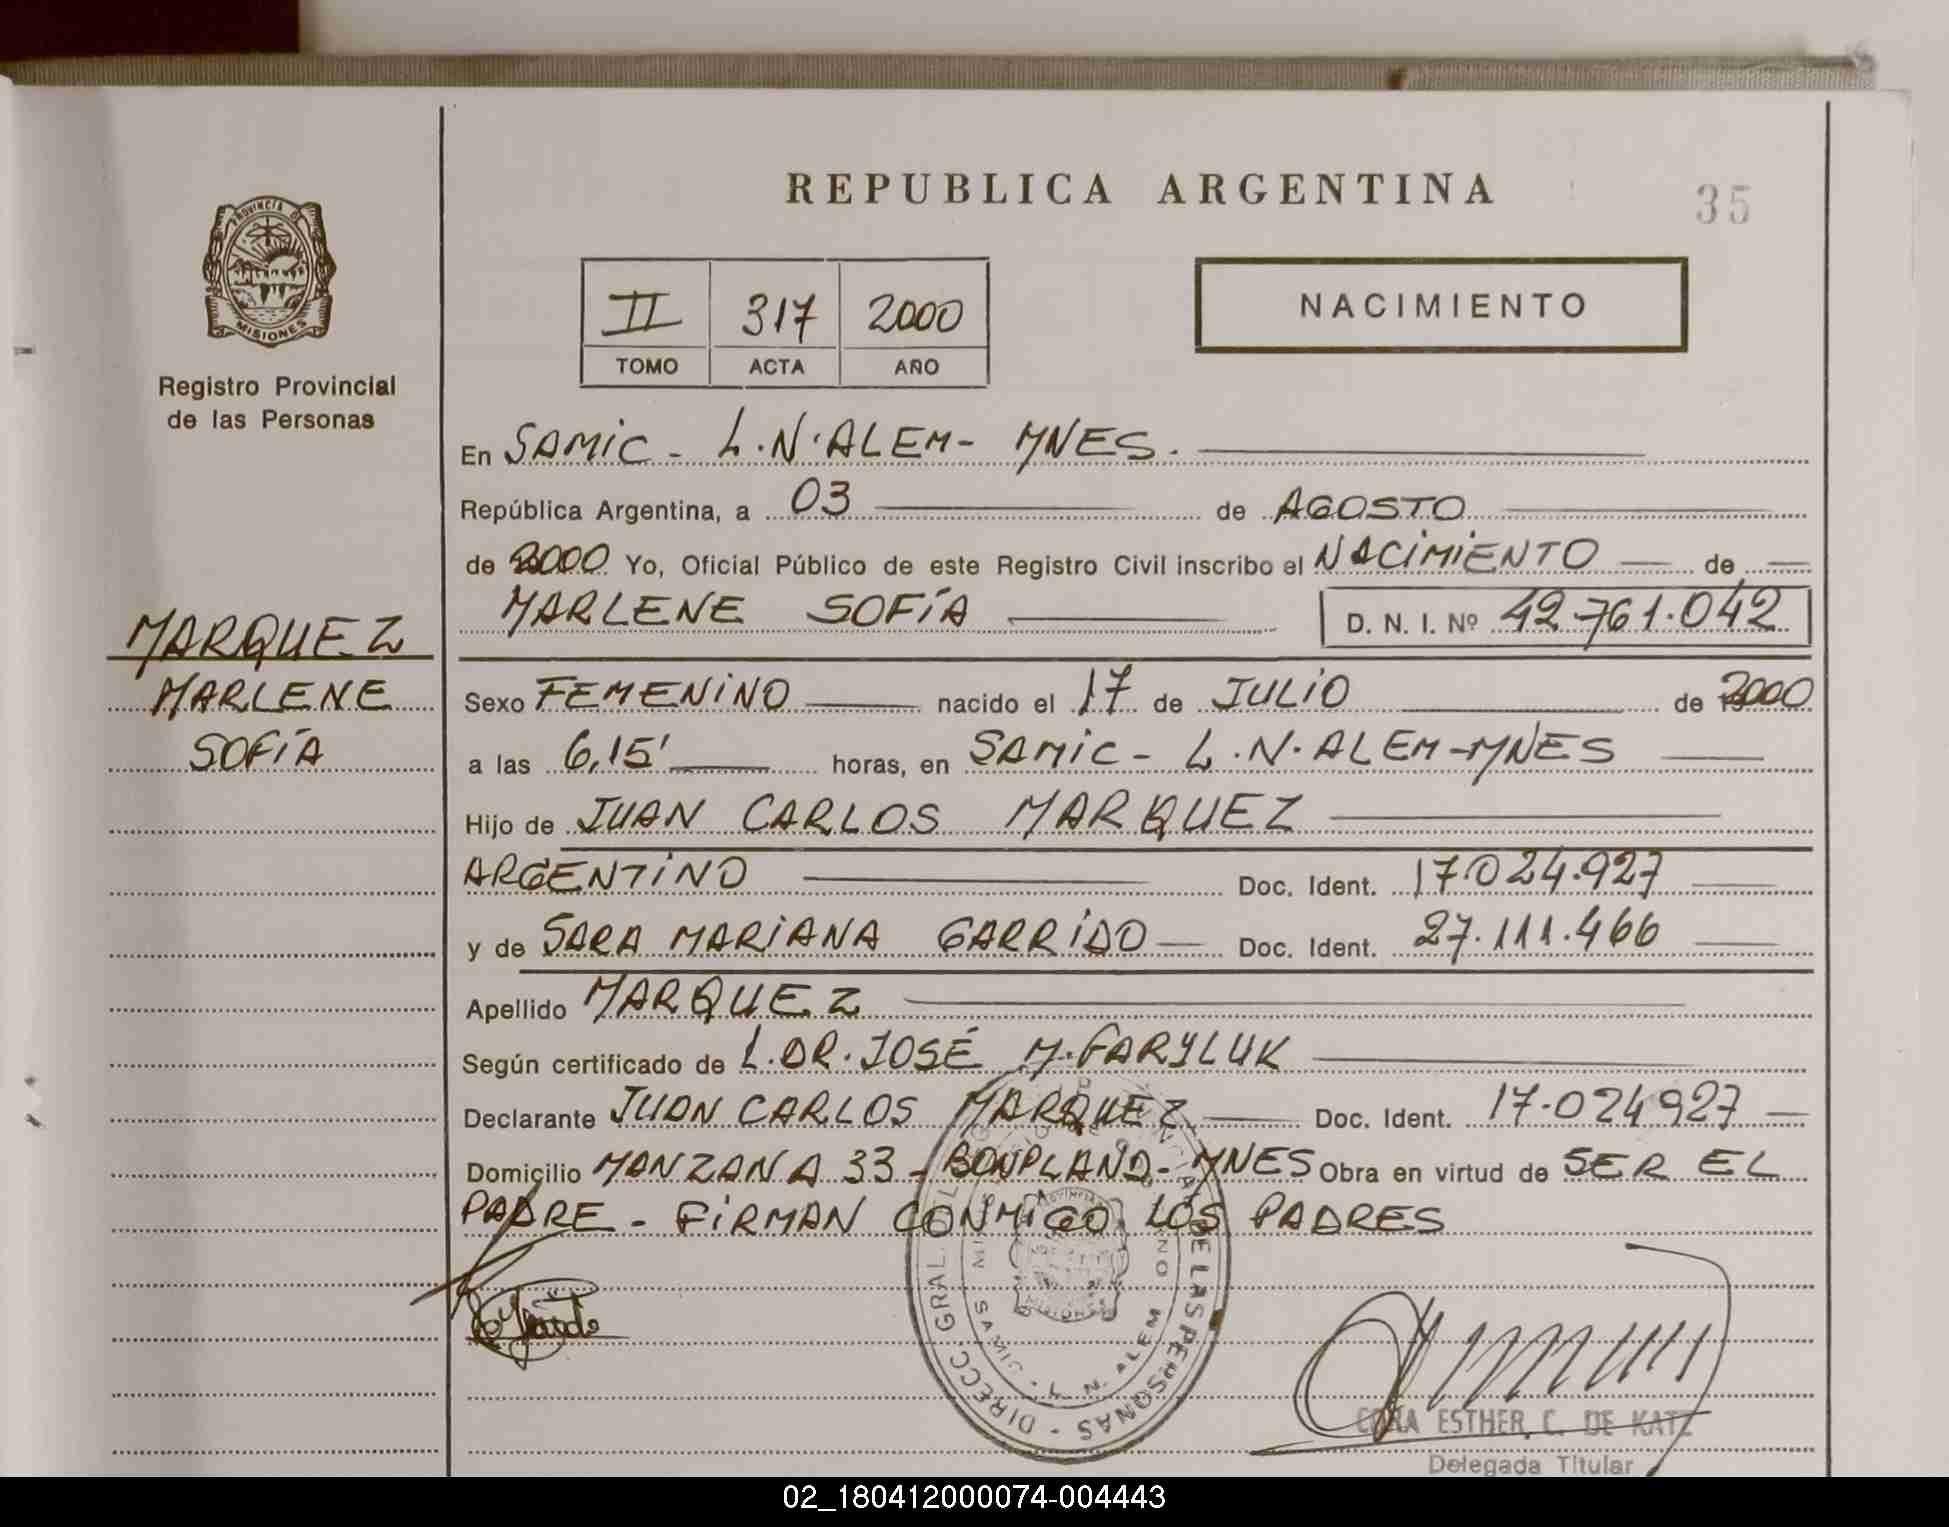 REPUBLICA ARGENTINA
35
PROVINCIA DE
MISIONES
Registro Provincial
de las Personas
II 317 2000
TOMO ACTA AÑO
NACIMIENTO
En SAMIC - L.N.ALEM - MNES.
República Argentina, a 03 de AGOSTO
de 2000 Yo, Oficial Público de este Registro Civil inscribo el NACIMIENTO de
MARLENE SOFÍA D. N. I. Nº 42.761.042
MARQUEZ
MARLENE
SOFÍA
Sexo FEMENINO nacido el 17 de JULIO de 2000
a las 6,15' horas, en SAMIC - L.N.ALEM - MNES
Hijo de JUAN CARLOS MARQUEZ
ARGENTINO Doc. Ident. 17.024.927
y de SARA MARIANA GARRIDO Doc. Ident. 27.111.466
Apellido MARQUEZ
Según certificado de L.DR.JOSÉ M.GARYLUK
Declarante JUAN CARLOS MARQUEZ Doc. Ident. 17.024927
Domicilio MANZANA 33 - BONPLAND - MNES Obra en virtud de SER EL
PADRE - FIRMAN CONMIGO LOS PADRES
DIRECC GRAL DE LAS PERSONAS
SAMIC - L. N. ALEM
CORA ESTHER C. DE KATZ
Delegada Titular
02_180412000074-004443